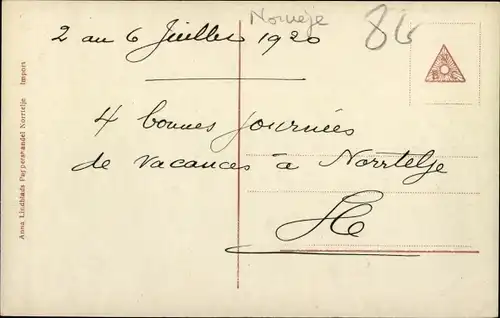 Norvège
86
2 au 6 Juillet 1920
N
B C
4 bonnes journées
de vacances à Norrtelje
H
Anna Lindblads Pappershandel Norrtelje Import